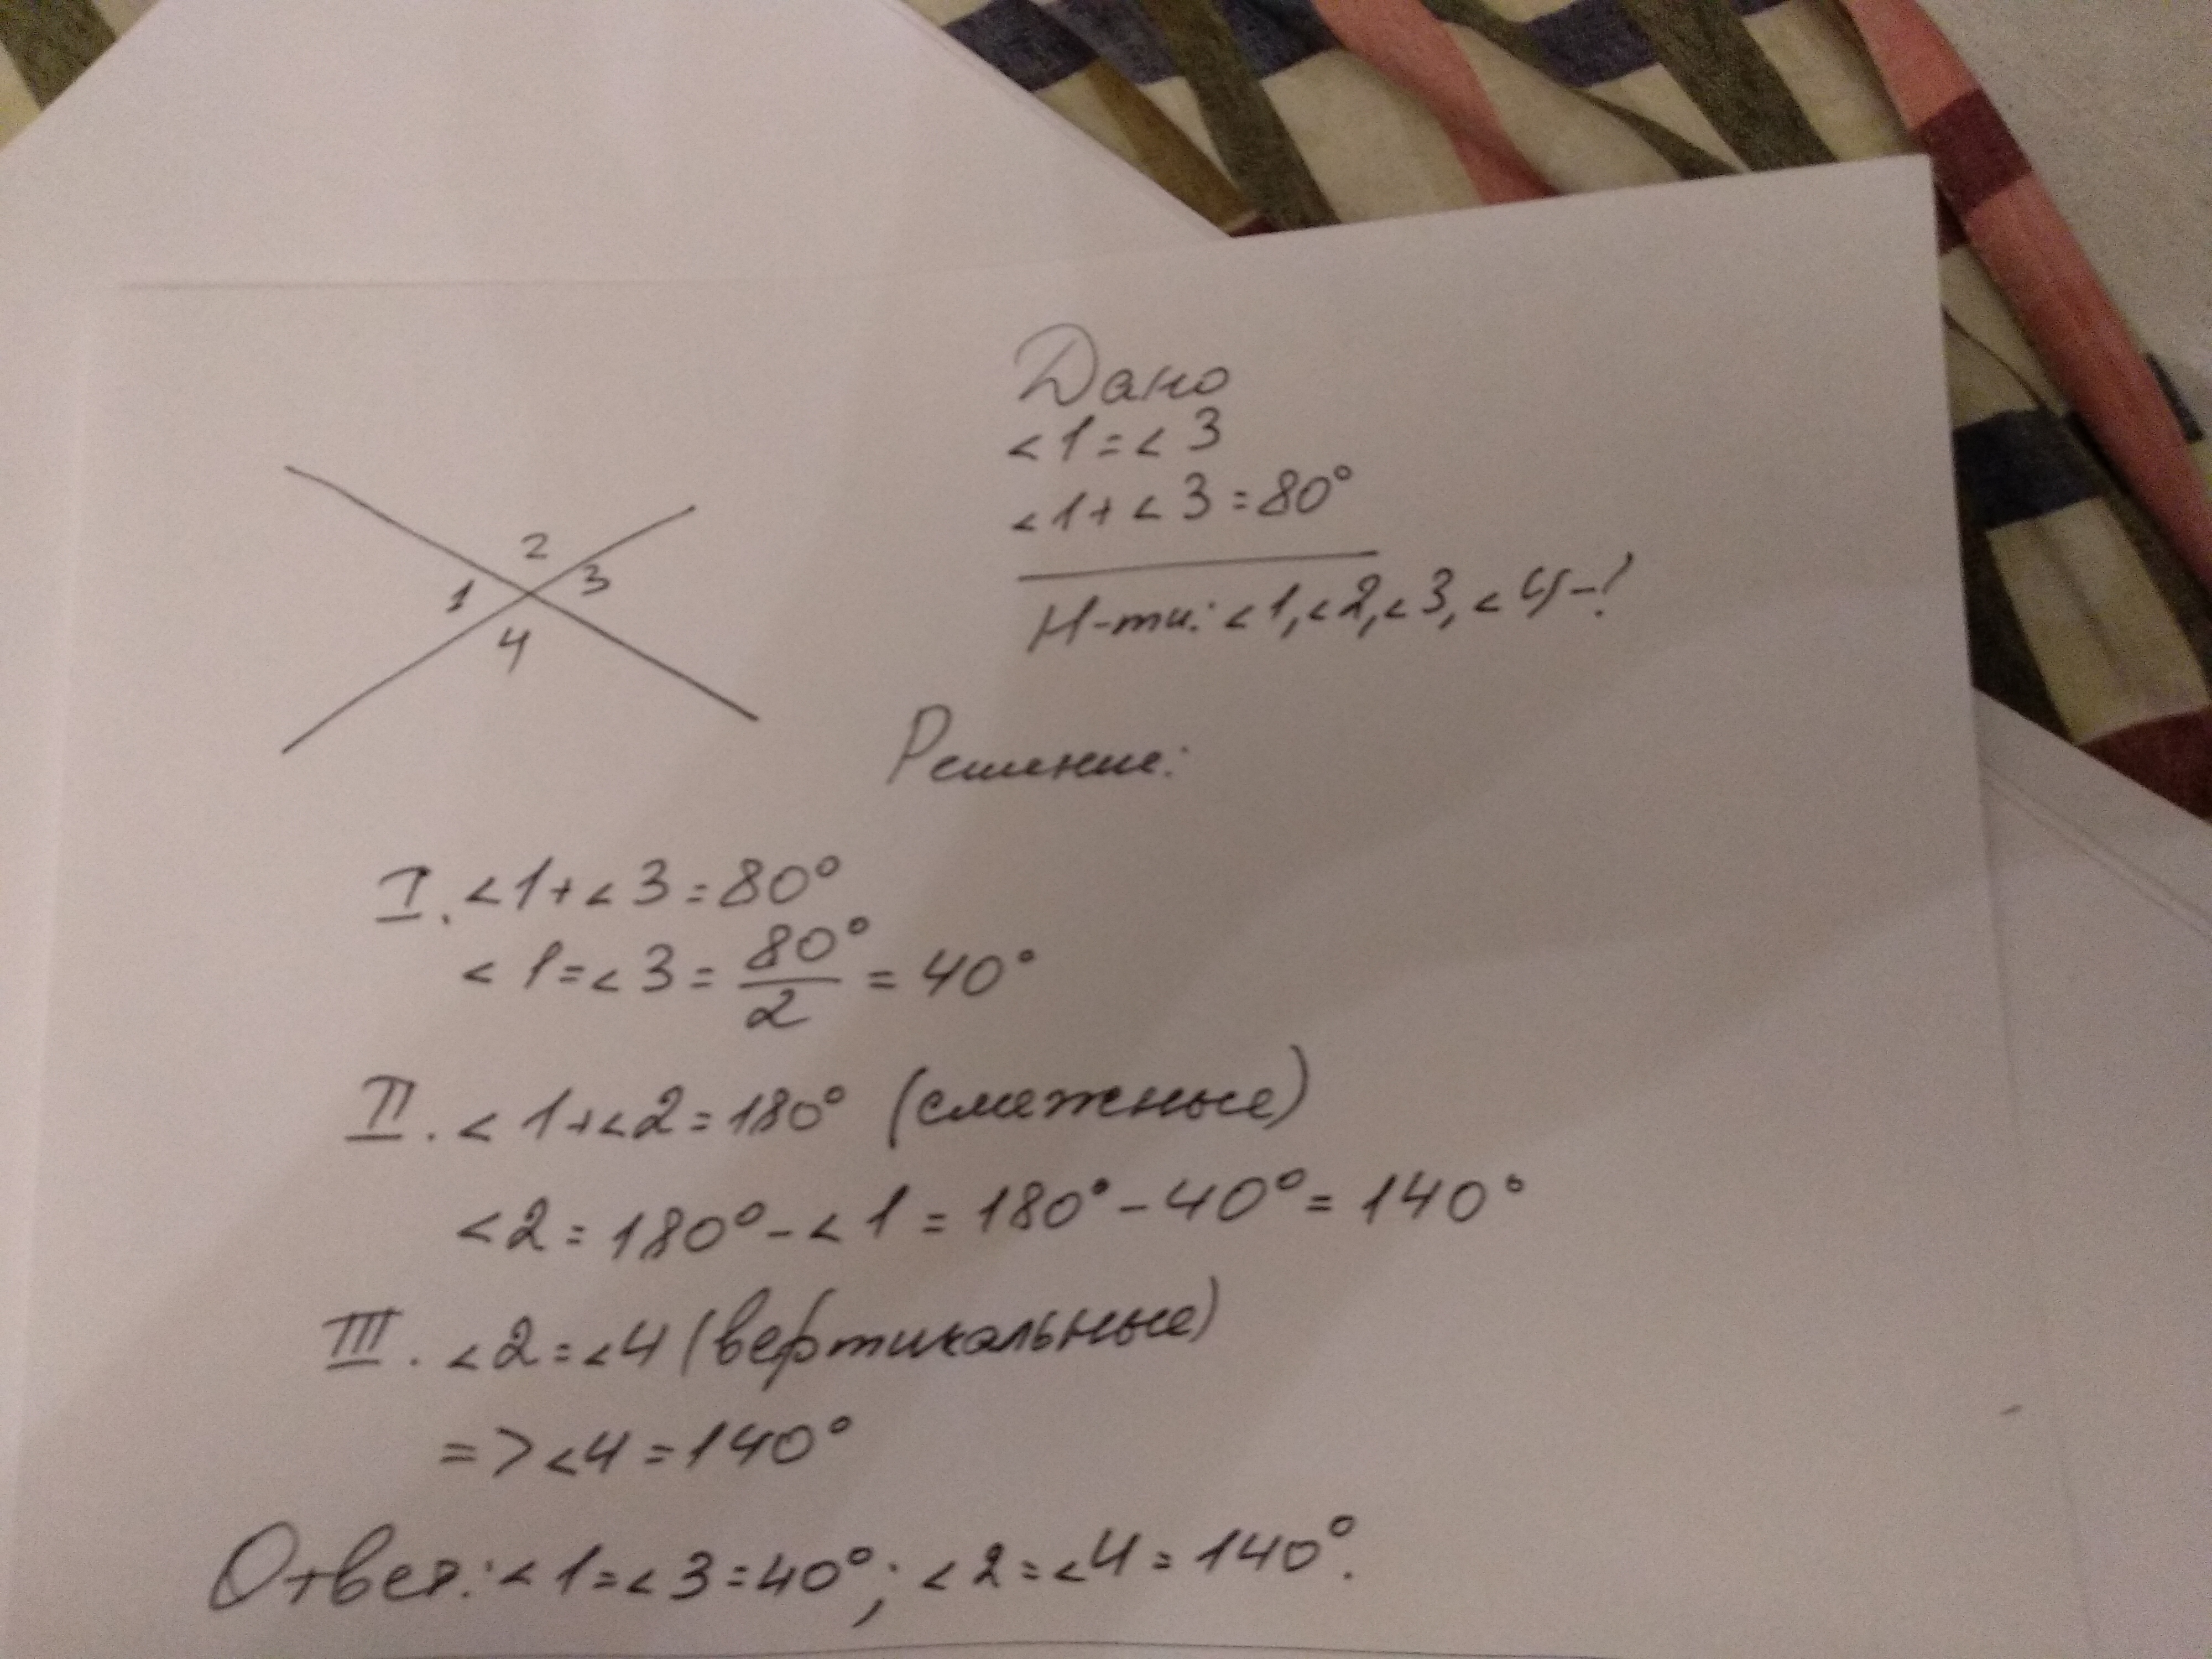 2
1 3
4
Дано
<1=<3
<1+<3=80°
Н-ти: <1,<2,<3,<4-?
Решение:
I. <1+<3=80°
<1=<3=80°/2=40°
II. <1+<2=180° (смежные)
<2=180°-<1=180°-40°=140°
III. <2=<4 (вертикальные)
=> <4=140°
Ответ: <1=<3=40°; <2=<4=140°.